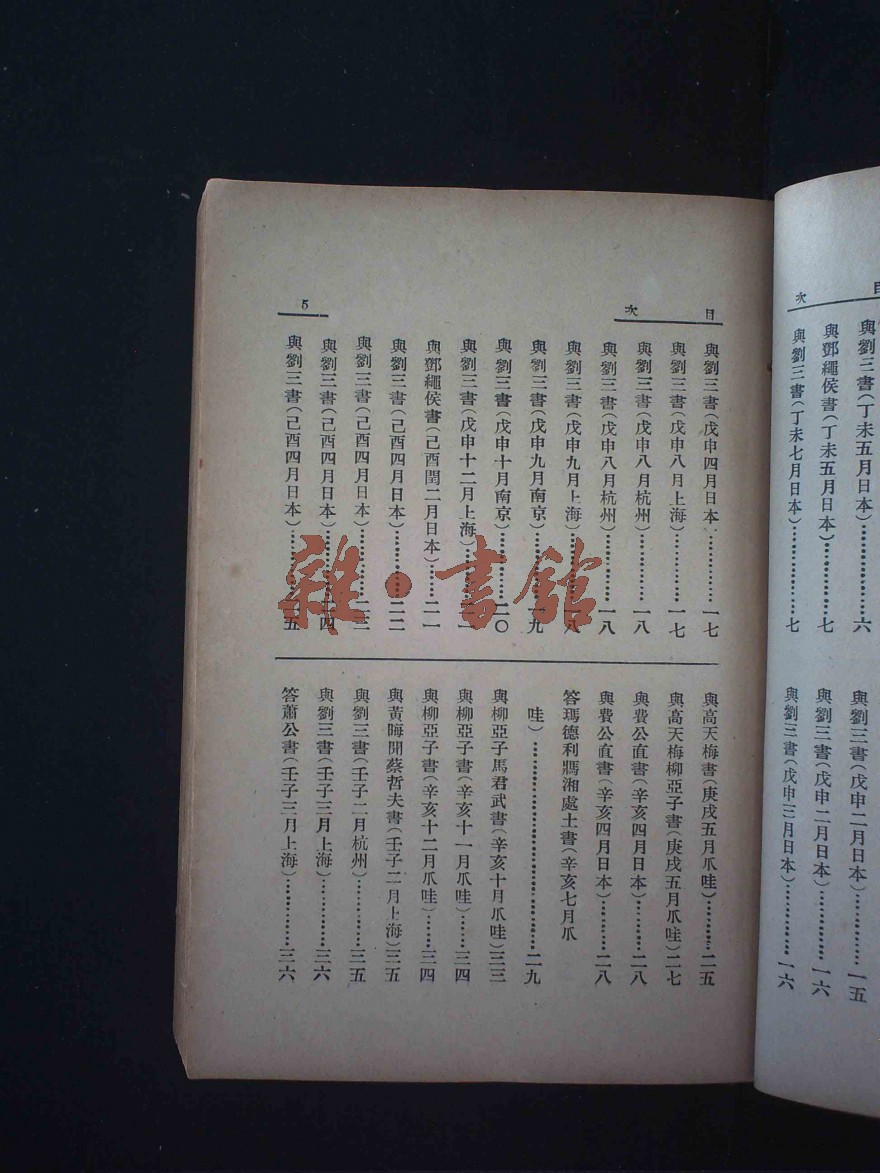 目次
與劉三書(丁未五月日本)…………六
與鄧繩侯書(丁未五月日本)…………七
與劉三書(丁未七月日本)…………七
與劉三書(戊申二月日本)…………一五
與劉三書(戊申二月日本)…………一六
與劉三書(戊申三月日本)…………一六
目次
5
與劉三書(戊申四月日本)…………一七
與劉三書(戊申八月上海)…………一七
與劉三書(戊申八月杭州)…………一八
與劉三書(戊申八月杭州)…………一八
與劉三書(戊申九月上海)…………一八
與劉三書(戊申九月南京)…………一九
與劉三書(戊申十月南京)…………二〇
與劉三書(戊申十二月上海)…………二一
與鄧繩侯書(己酉閏二月日本)……二一
與劉三書(己酉四月日本)…………二二
與劉三書(己酉四月日本)…………二三
與劉三書(己酉四月日本)…………二四
與劉三書(己酉四月日本)…………二五
與高天梅書(庚戌五月爪哇)………二五
與高天梅柳亞子書(庚戌五月爪哇)二七
與費公直書(辛亥四月日本)………二八
與費公直書(辛亥四月日本)………二八
答瑪德利馮湘處士書(辛亥七月爪
哇)…………………………………二九
與柳亞子馬君武書(辛亥十月爪哇)三三
與柳亞子書(辛亥十一月爪哇)……三四
與柳亞子書(辛亥十二月爪哇)……三四
與黃晦聞蔡哲夫書(壬子二月上海)三五
與劉三書(壬子二月杭州)…………三五
與劉三書(壬子三月上海)…………三六
答蕭公書(壬子三月上海)…………三六
雜·書館